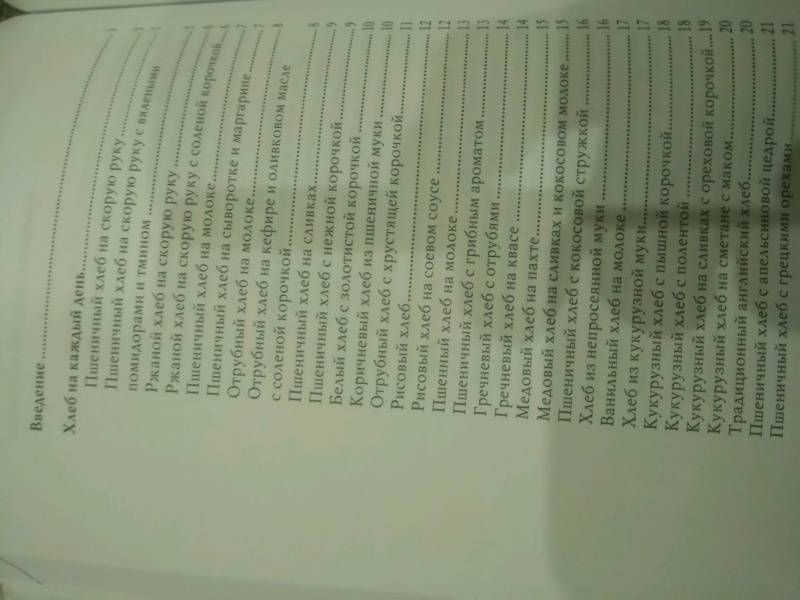 Введение 3
Хлеб на каждый день 5
Пшеничный хлеб на скорую руку 5
Пшеничный хлеб на скорую руку с вялеными
помидорами и тмином 5
Ржаной хлеб на скорую руку 6
Ржаной хлеб на скорую руку с соленой корочкой 6
Пшеничный хлеб на молоке 7
Пшеничный хлеб на сыворотке и маргарине 7
Отрубный хлеб на молоке 8
Отрубный хлеб на кефире и оливковом масле
с соленой корочкой 8
Пшеничный хлеб на сливках 9
Пшеничный хлеб с нежной корочкой 9
Белый хлеб с золотистой корочкой 10
Коричневый хлеб из пшеничной муки 10
Отрубный хлеб с хрустящей корочкой 11
Рисовый хлеб 12
Рисовый хлеб на соевом соусе 12
Пшенный хлеб на молоке 13
Пшеничный хлеб с грибным ароматом 13
Гречневый хлеб с отрубями 14
Гречневый хлеб на квасе 14
Медовый хлеб на пахте 15
Медовый хлеб на сливках и кокосовом молоке 15
Пшеничный хлеб с кокосовой стружкой 16
Хлеб из непросеянной муки 16
Ванильный хлеб на молоке 17
Хлеб из кукурузной муки 17
Кукурузный хлеб с пышной корочкой 18
Кукурузный хлеб с полентой 18
Кукурузный хлеб на сливках с ореховой корочкой 19
Кукурузный хлеб на сметане с маком 20
Традиционный английский хлеб 20
Пшеничный хлеб с апельсиновой цедрой 21
Пшеничный хлеб с грецкими орехами 21